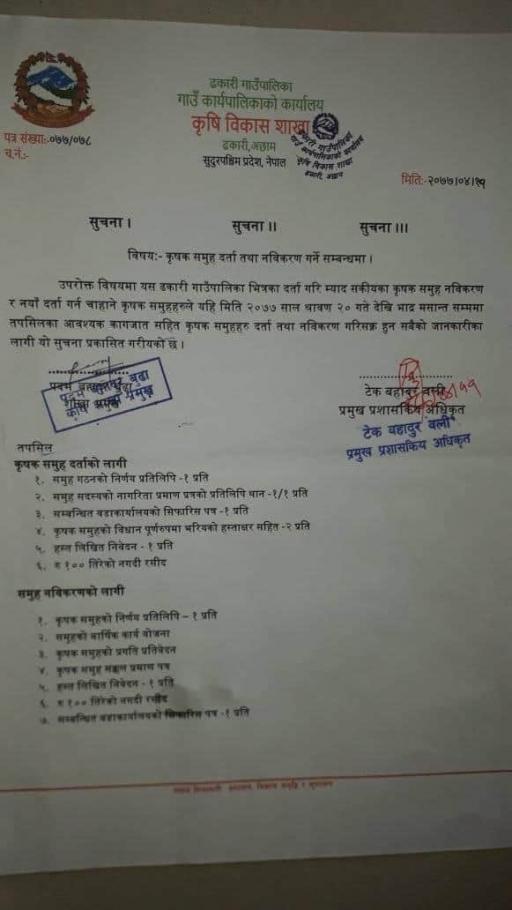 ढकारी गाउँपालिका
गाउँ कार्यपालिकाको कार्यालय
कृषि विकास शाखा
ढकारी,अछाम
सुदुरपश्चिम प्रदेश, नेपाल
पत्र संख्या:-०७७/०७८
च.नं.:-
मिति:-२०७७/०४/१९
सुचना । सुचना ।। सुचना ।।।
विषय:- कृषक समुह दर्ता तथा नविकरण गर्ने सम्बन्धमा ।
उपरोक्त विषयमा यस ढकारी गाउँपालिका भित्रका दर्ता गरि म्याद सकीयका कृषक समुह नविकरण
र नयाँ दर्ता गर्न चाहाने कृषक समुहहरुले यहि मिति २०७७ साल श्रावण २० गते देखि भाद्र मसान्त सम्ममा
तपसिलका आवश्यक कागजात सहित कृषक समुहहरु दर्ता तथा नविकरण गरिसक्नु हुन सबैको जानकारीका
लागी यो सुचना प्रकासित गरीयको छ ।
शाखा प्रमुख
टेक बहादुर वली
प्रमुख प्रशासकिय अधिकृत
टेक बहादुर वली
प्रमुख प्रशासकिय अधिकृत
तपसिल
कृषक समुह दर्ताको लागी
१. समुह गठनको निर्णय प्रतिलिपि -१ प्रति
२. समुह सदस्यको नागरिता प्रमाण प्रत्रको प्रतिलिपि थान -१/१ प्रति
३. सम्बन्धित वडाकार्यालयको सिफारिस पत्र -१ प्रति
४. कृषक समुहको विधान पूर्णरुपमा भरियको हस्ताक्षर सहित -२ प्रति
५. हस्त लिखित निवेदन - १ प्रति
६. रु १०० तिरेको नगदी रसीद
समुह नविकरणको लागी
१. कृषक समुहको निर्णय प्रतिलिपि – १ प्रति
२. समुहको वार्षिक कार्य योजना
३. कृषक समुहको प्रगति प्रतिवेदन
४. कृषक समुह सक्कल प्रमाण पत्र
५. हस्त लिखित निवेदन - १ प्रति
६. रु १०० तिरेको नगदी रसीद
७. सम्बन्धित वडाकार्यालयको सिफारिस पत्र -१ प्रति